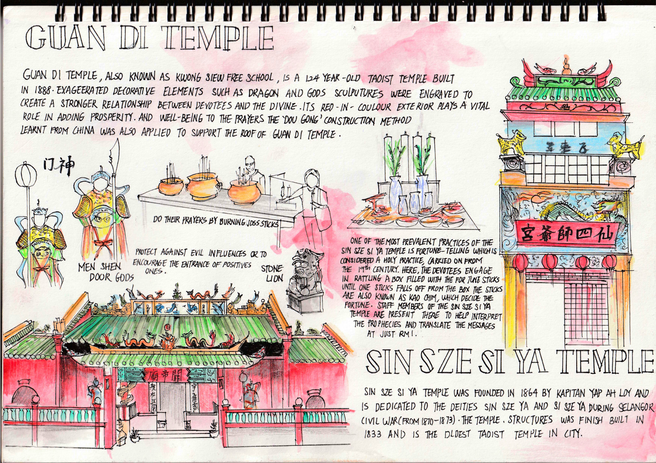 GUAN DI TEMPLE
GUAN DI TEMPLE, ALSO KNOWN AS KWONG SIEW FREE SCHOOL, IS A 124 YEAR-OLD TAOIST TEMPLE BUILT
IN 1888. EXAGEERATED DECORATIVE ELEMENTS SUCH AS DRAGON AND GODS SCULPUTURES WERE ENGRAVED TO
CREATE A STRONGER RELATIONSHIP BETWEEN DEVOTEES AND THE DIVINE. ITS RED-IN-COULOUR EXTERIOR PLAYS A VITAL
ROLE IN ADDING PROSPERITY. AND WELL-BEING TO THE PRAYERS THE 'DOU GONG' CONSTRUCTION METHOD
LEARNT FROM CHINA WAS ALSO APPLIED TO SUPPORT THE ROOF OF GUAN DI TEMPLE.
门神
MEN SHEN
DOOR GODS
DO THEIR PRAYERS BY BURNING JOSS STICKS
PROTECT AGAINST EVIL INFLUENCES OR TO
ENCOURAGE THE ENTRANCE OF POSITIVES
ONES.
STONE
LION
ONE OF THE MOST PREVALENT PRACTICES OF THE
SIN SZE SI YA TEMPLE IS FORTUNE-TELLING WHICH IS
CONSIDERED A HOLY PRACTICE, CARRIED ON FROM
THE 19TH CENTURY. HERE, THE DEVOTEES ENGAGE
IN RATTLING A BOX FILLED WITH STICKS
UNTIL ONE STICKS FALLS OFF FROM THE BOX. THE STICKS
ARE ALSO KNOWN AS KAO CHIM, WHICH DECIDE THE
FORTUNE. STAFF MEMBERS OF THE SIN SZE SI YA
TEMPLE ARE PRESENT THERE TO HELP INTERPRET
THE PROPHECIES AND TRANSLATE THE MESSAGES
AT JUST RM1.
宮爺師四仙
SIN SZE SI YA TEMPLE
SIN SZE SI YA TEMPLE WAS FOUNDED IN 1864 BY KAPITAN YAP AH LOY AND
IS DEDICATED TO THE DEITIES SIN SZE YA AND SI SZE YA DURING SELANGOR
CIVIL WAR (FROM 1870-1873). THE TEMPLE. STRUCTURES WAS FINISH BUILT IN
1833 AND IS THE OLDEST TAOIST TEMPLE IN CITY.